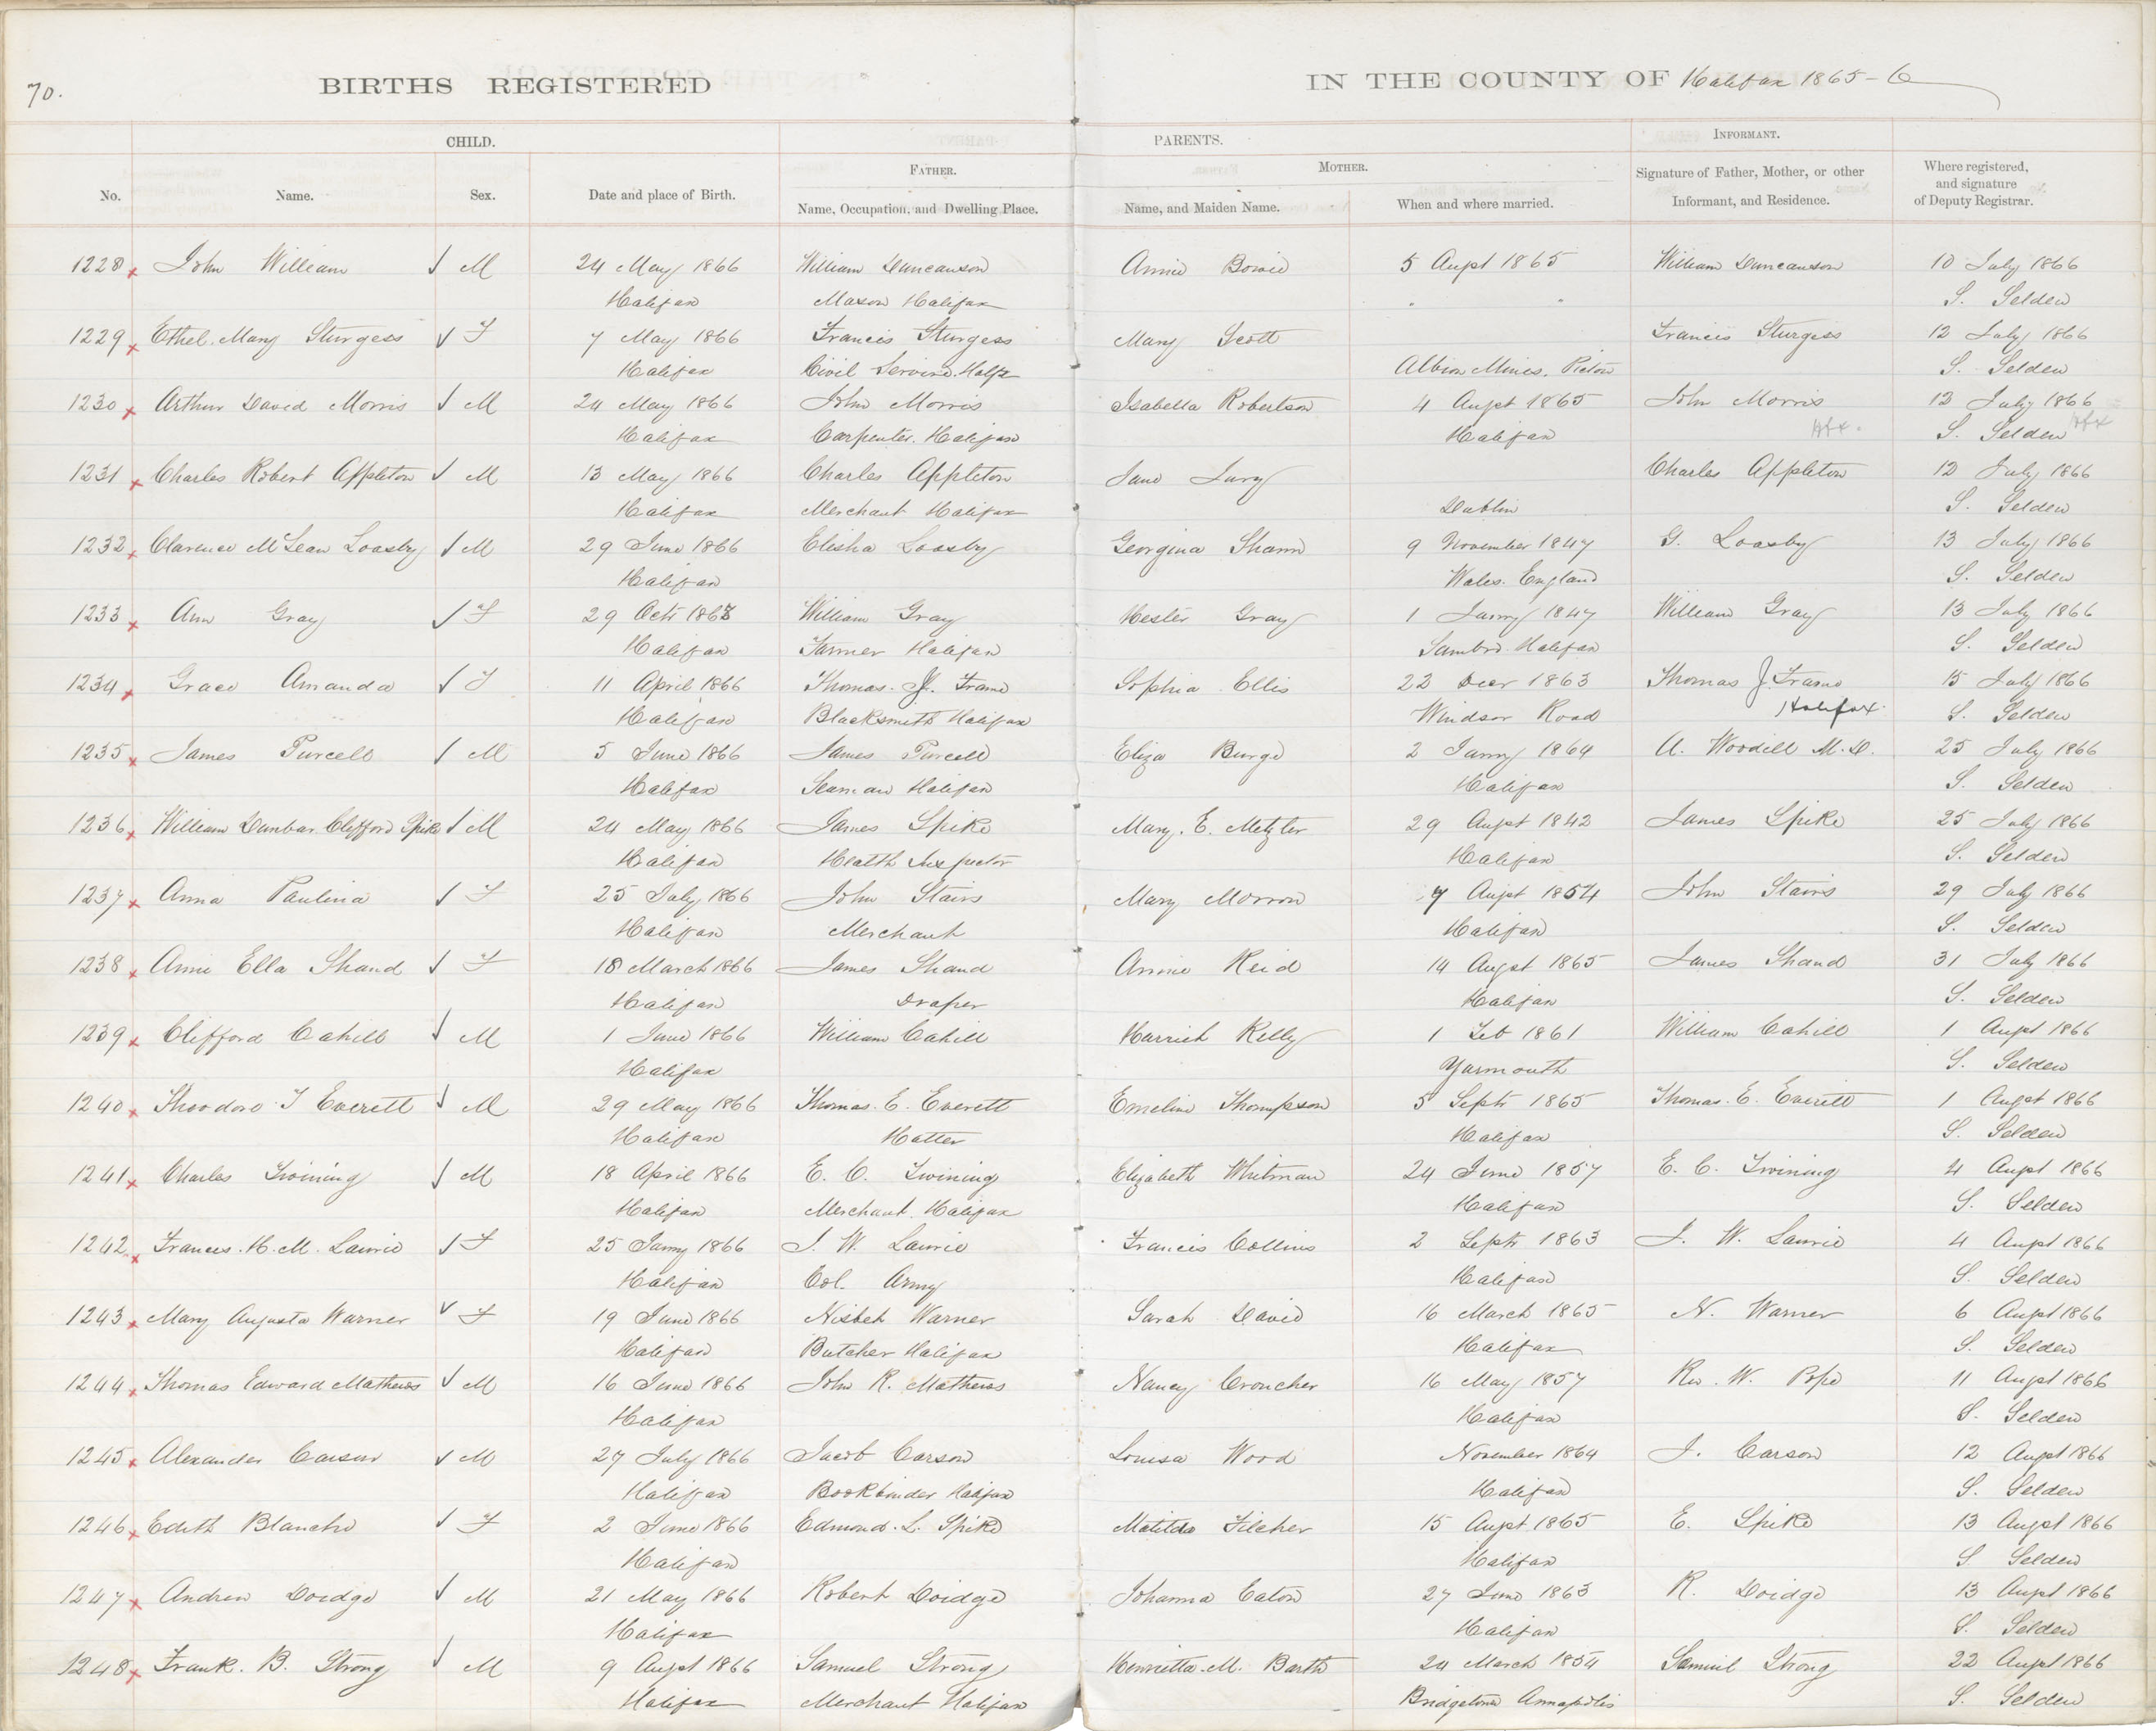 70.
BIRTHS REGISTERED IN THE COUNTY OF Halifax 1865-6
CHILD. PARENTS. INFORMANT.
FATHER. MOTHER. Signature of Father, Mother, or other Where registered,
and signature
No. Name. Sex. Date and place of Birth. Name, Occupation, and Dwelling Place. Name, and Maiden Name. When and where married. Informant, and Residence. of Deputy Registrar.
1228 John William M 24 May 1866 William Duncanson Annie Bowie 5 Augst 1865 William Duncanson 10 July 1866
Halifax Mason Halifax " " S. Selden
1229 Ethel Mary Sturgess F 7 May 1866 Francis Sturgess Mary Scott Francis Sturgess 12 July 1866
Halifax Civil Service Halfx Albion Mines. Pictou S. Selden
1230 Arthur David Morris M 24 May 1866 John Morris Isabella Robertson 4 Augst 1865 John Morris 12 July 1866
Halifax Carpenter. Halifax Halifax Hfx. S. Selden Hfx
1231 Charles Robert Appleton M 13 May 1866 Charles Appleton Jane Charles Appleton 12 July 1866
Halifax Merchant Halifax Dublin S. Selden
1232 Clarence McLean Loasby M 29 June 1866 Elisha Loasby Georgina Shann 9 November 1847 G. Loasby 13 July 1866
Halifax Wales. England S. Selden
1233 Ann Gray F 29 Octr William Gray Hester Gray 1 Janry 1847 William Gray 13 July 1866
Halifax Farmer Halifax Sambro. Halifax S. Selden
1234 Grace Amanda F 11 April 1866 Thomas. J. Frame Sophia Ellis 22 Decr 1863 Thomas J. Frame 15 July 1866
Halifax Blacksmith Halifax Windsor Road Halifax. S. Selden
1235 James Purcell M 5 June 1866 James Purcell Eliza Burge 2 Janry 1864 A. Woodill M.D. 25 July 1866
Halifax Seaman Halifax Halifax S. Selden
1236 William Dunbar Clifford Spike M 24 May 1866 James Spike Mary. E. Metzler 29 Augst 1842 James Spike 25 July 1866
Halifax Health Inspector Halifax S. Selden
1237 Anna Paulina F 25 July 1866 John Stairs Mary Morrow 7 Augst 1854 John Stairs 29 July 1866
Halifax Merchant Halifax S. Selden
1238 Annie Ella Shand F 18 March 1866 James Shand Annie Reid 14 Augst 1865 James Shand 31 July 1866
Halifax Draper Halifax S. Selden
1239 Clifford Cahill M 1 June 1866 William Cahill Harriet Kelly 1 Feb 1861 William Cahill 1 Augst 1866
Halifax Yarmouth S. Selden
1240 Theodore T Everett M 29 May 1866 Thomas. E. Everett Emeline Thompson 5 Septr 1865 Thomas. E. Everett 1 Augst 1866
Halifax Hatter Halifax S. Selden
1241 Charles Twining M 18 April 1866 E. C. Twining Elizabeth Whitman 24 June 1857 E. C. Twining 4 Augst 1866
Halifax Merchant. Halifax Halifax S. Selden
1242 Frances. H. M. Laurie F 25 Janry 1866 J. W. Laurie Francis Collins 2 Septr 1863 J. W. Laurie 4 Augst 1866
Halifax Col. Army Halifax S. Selden
1243 Mary Augusta Warner F 19 June 1866 Nisbet Warner Sarah David 16 March 1865 N. Warner 6 Augst 1866
Halifax Butcher Halifax Halifax S. Selden
1244 Thomas Edward Mathews M 16 June 1866 John R. Mathews Nancy Croucher 16 May 1857 Rev. W. Pope 11 Augst 1866
Halifax Halifax S. Selden
1245 Alexander Carson M 27 July 1866 Jacob Carson Louisa Wood November 1864 J. Carson 12 Augst 1866
Halifax Bookbinder Halifax Halifax S. Selden
1246 Edith Blanche F 2 June 1866 Edmond. L. Spike Matilda Filcher 15 Augst 1865 E. Spike 13 Augst 1866
Halifax Halifax S. Selden
1247 Andrew Doidge M 21 May 1866 Robert Doidge Johanna Eaton 27 June 1863 R. Doidge 13 Augst 1866
Halifax Halifax S. Selden
1248 Frank. B. Strong M 9 Augst 1866 Samuel Strong Henrietta. M. Barth 24 March 1854 Samuel Strong 22 Augst 1866
Halifax Merchant Halifax Bridgetown Annapolis S. Selden